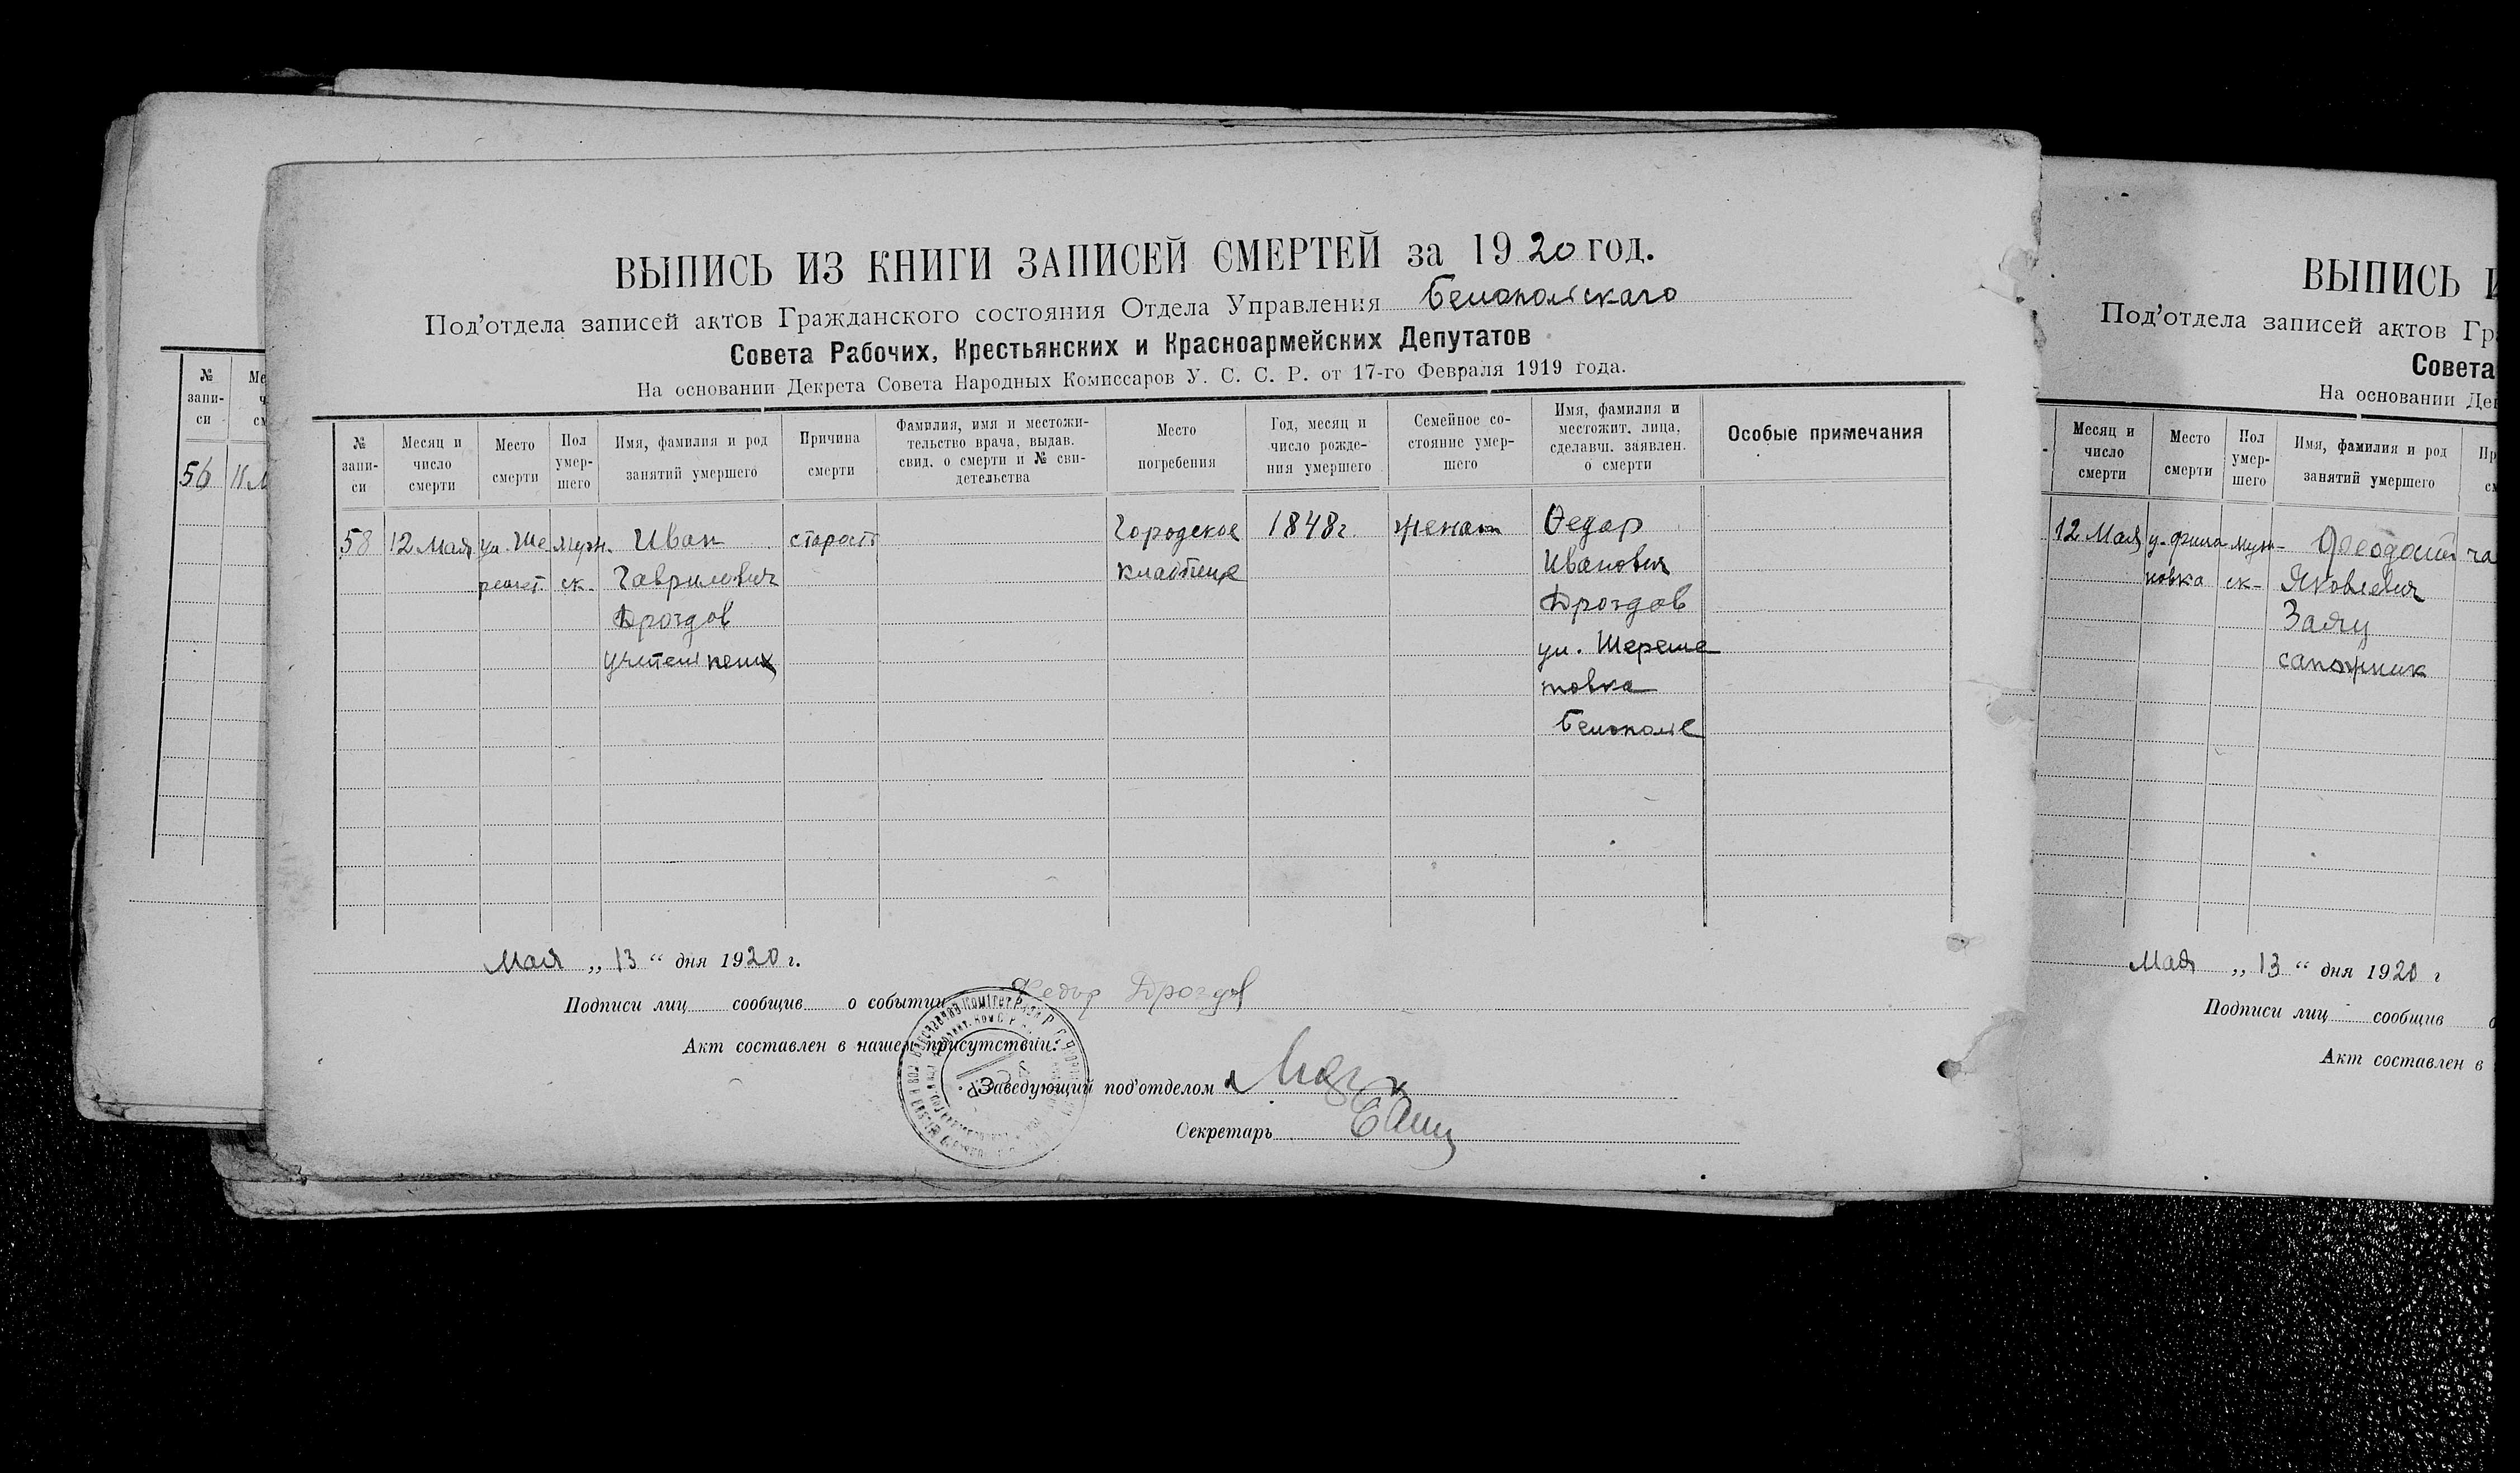 ВЫПИСЬ ИЗ КНИГИ ЗАПИСЕЙ СМЕРТЕЙ за 1920 год.
Под'отдела записей актов Гражданского состояния Отдела Управления Белопольскаго
Совета Рабочих, Крестьянских и Красноармейских Депутатов
На основании Декрета Совета Народных Комиссаров У. С. С. Р. от 17-го Февраля 1919 года.
№ запи- си
Месяц и число смерти
Место смерти
Пол умер- шего
Имя, фамилия и род занятий умершего
Причина смерти
Фамилия, имя и местожи- тельство врача, выдав. свид. о смерти и № сви- детельства
Место погребения
Год, месяц и число рожде- ния умершего
Семейное со- стояние умер- шего
Имя, фамилия и местожит. лица, сделавш. заявлен. о смерти
Особые примечания
58 12 Мая ул. Ше муж. Иван старость Городское 1848 г. женат Федор
ск. Гаврилович кладбище Иванович
Дроздов Дроздов
учитель ул. Шереме
товка
Белополе
Мая „ 13 “ дня 1920 г.
Подписи лиц сообщив о событии Федор Дроздов
Акт составлен в нашем присутствии:
Заведующий под'отделом
Секретарь
№
запи-
си
56
ВЫПИСЬ
Под'отдела записей актов
Совета
На основании
Месяц и число смерти
Место смерти
Пол умер- шего
Имя, фамилия и род занятий умершего
12 Мая муж- Феодосий
новка ск- Яковлевич
Заяц
сапожник
Мая „ 13 “ дня 1920 г
Подписи лиц сообщив
Акт составлен в